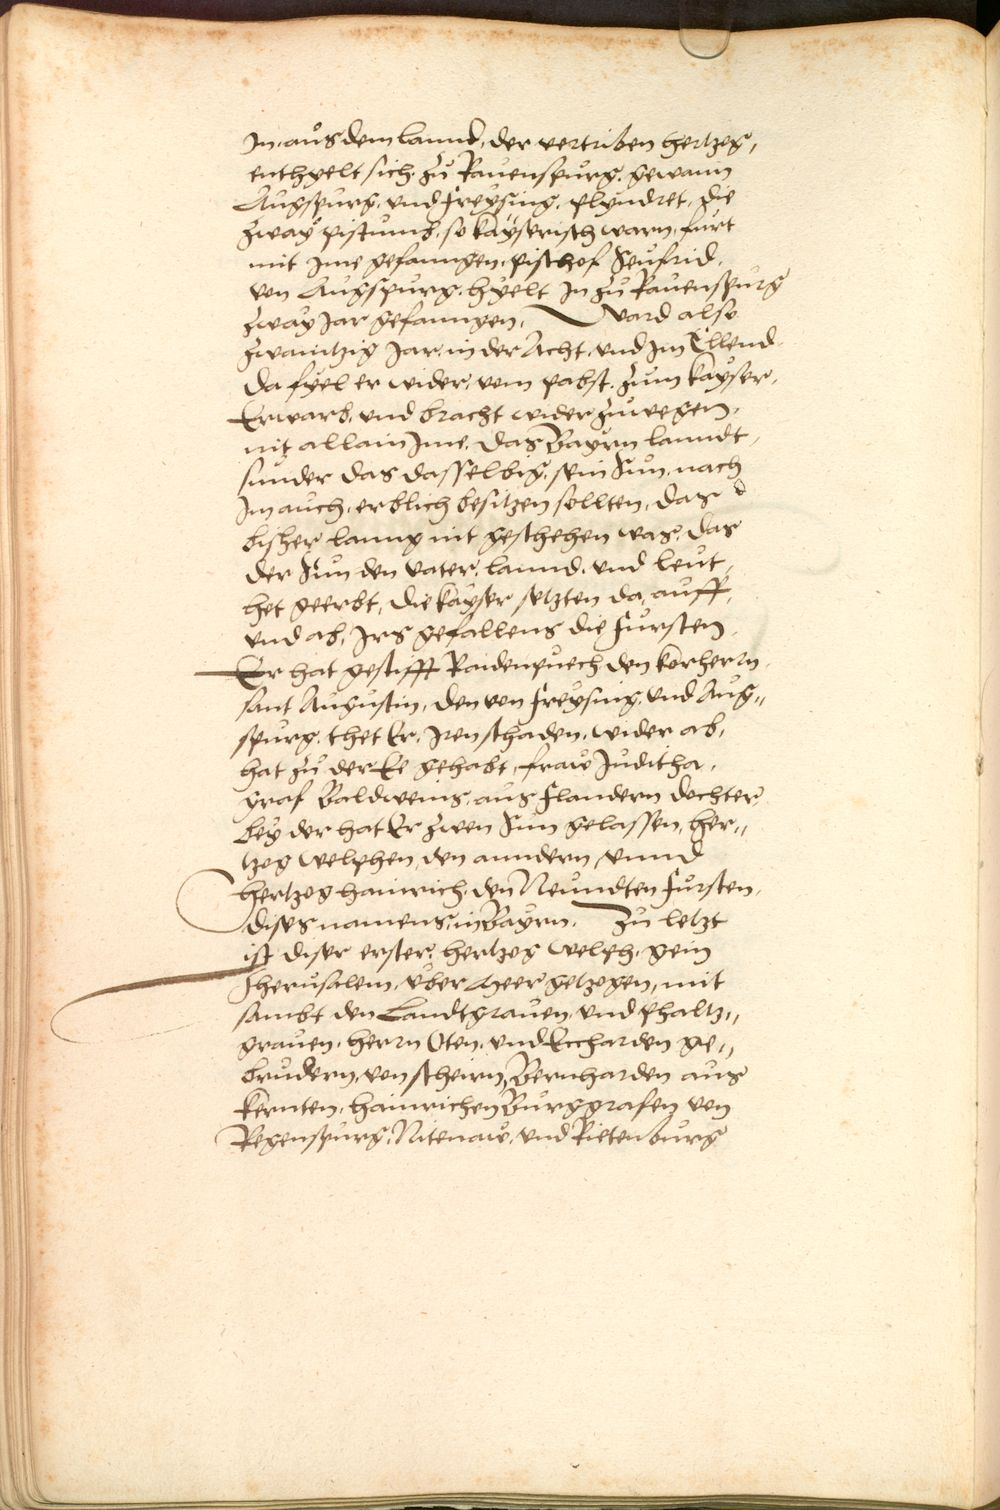 In, aus dem lannd, der vertriben hertzog,
enthyelt sich, zu Ravenspurg, gewann
Augspurg, und Freysing, plyndret, die
zway pistumb, so kayserisch warn, furt
mit ime gefanngen, pischof Seufrid,
von Augspurg, hyelt in zu Ravenspurg
zway Jar gefanngen, Ward also
zwaintzig Jar, in der Acht, und im Ellend
da fyel er wider, vom pabst, zum kayser,
Erwarb, und bracht wider zuwegen,
nit allain Ime, das Bayrn lanndt,
sunder das dasselbig, sein Sun, nach
Im auch, erblich besitzen sollten, das
bisher lanng nit geschehen was, das
der Sun den vater, lannd, und leut,
het geerbt, die kayser setzten da, auff,
und ab, Irs gefallens die Fursten,
Er hat gestifft Raidenpuech den korhern
sant Augustin, den von Freysing, und Aug„
spurg, thet Er, Iren schaden, wider ab,
hat zu der Ee gehabt, fraw Juditha,
graf Baldweins, aus Flandern dochter
bey der hat Er zwen Sun gelassen, her„
tzog Welphen, den anndern, unnd
hertzog hainrich, den Neundten Fursten,
dises namens, in Bayrn, Zu letzt
ist diser erster, hertzog Welph, gein
Jherusalem, uber Meer getzogen, mit
sambt den Landtgraven, und phaltz„
graven, herrn Oten, und Eccharden ge„
brudern, von scheirn, Bernharden aus
kernten, hainrichen Burggrafen von
Regenspurg, Nitenaw, und Rietenburg